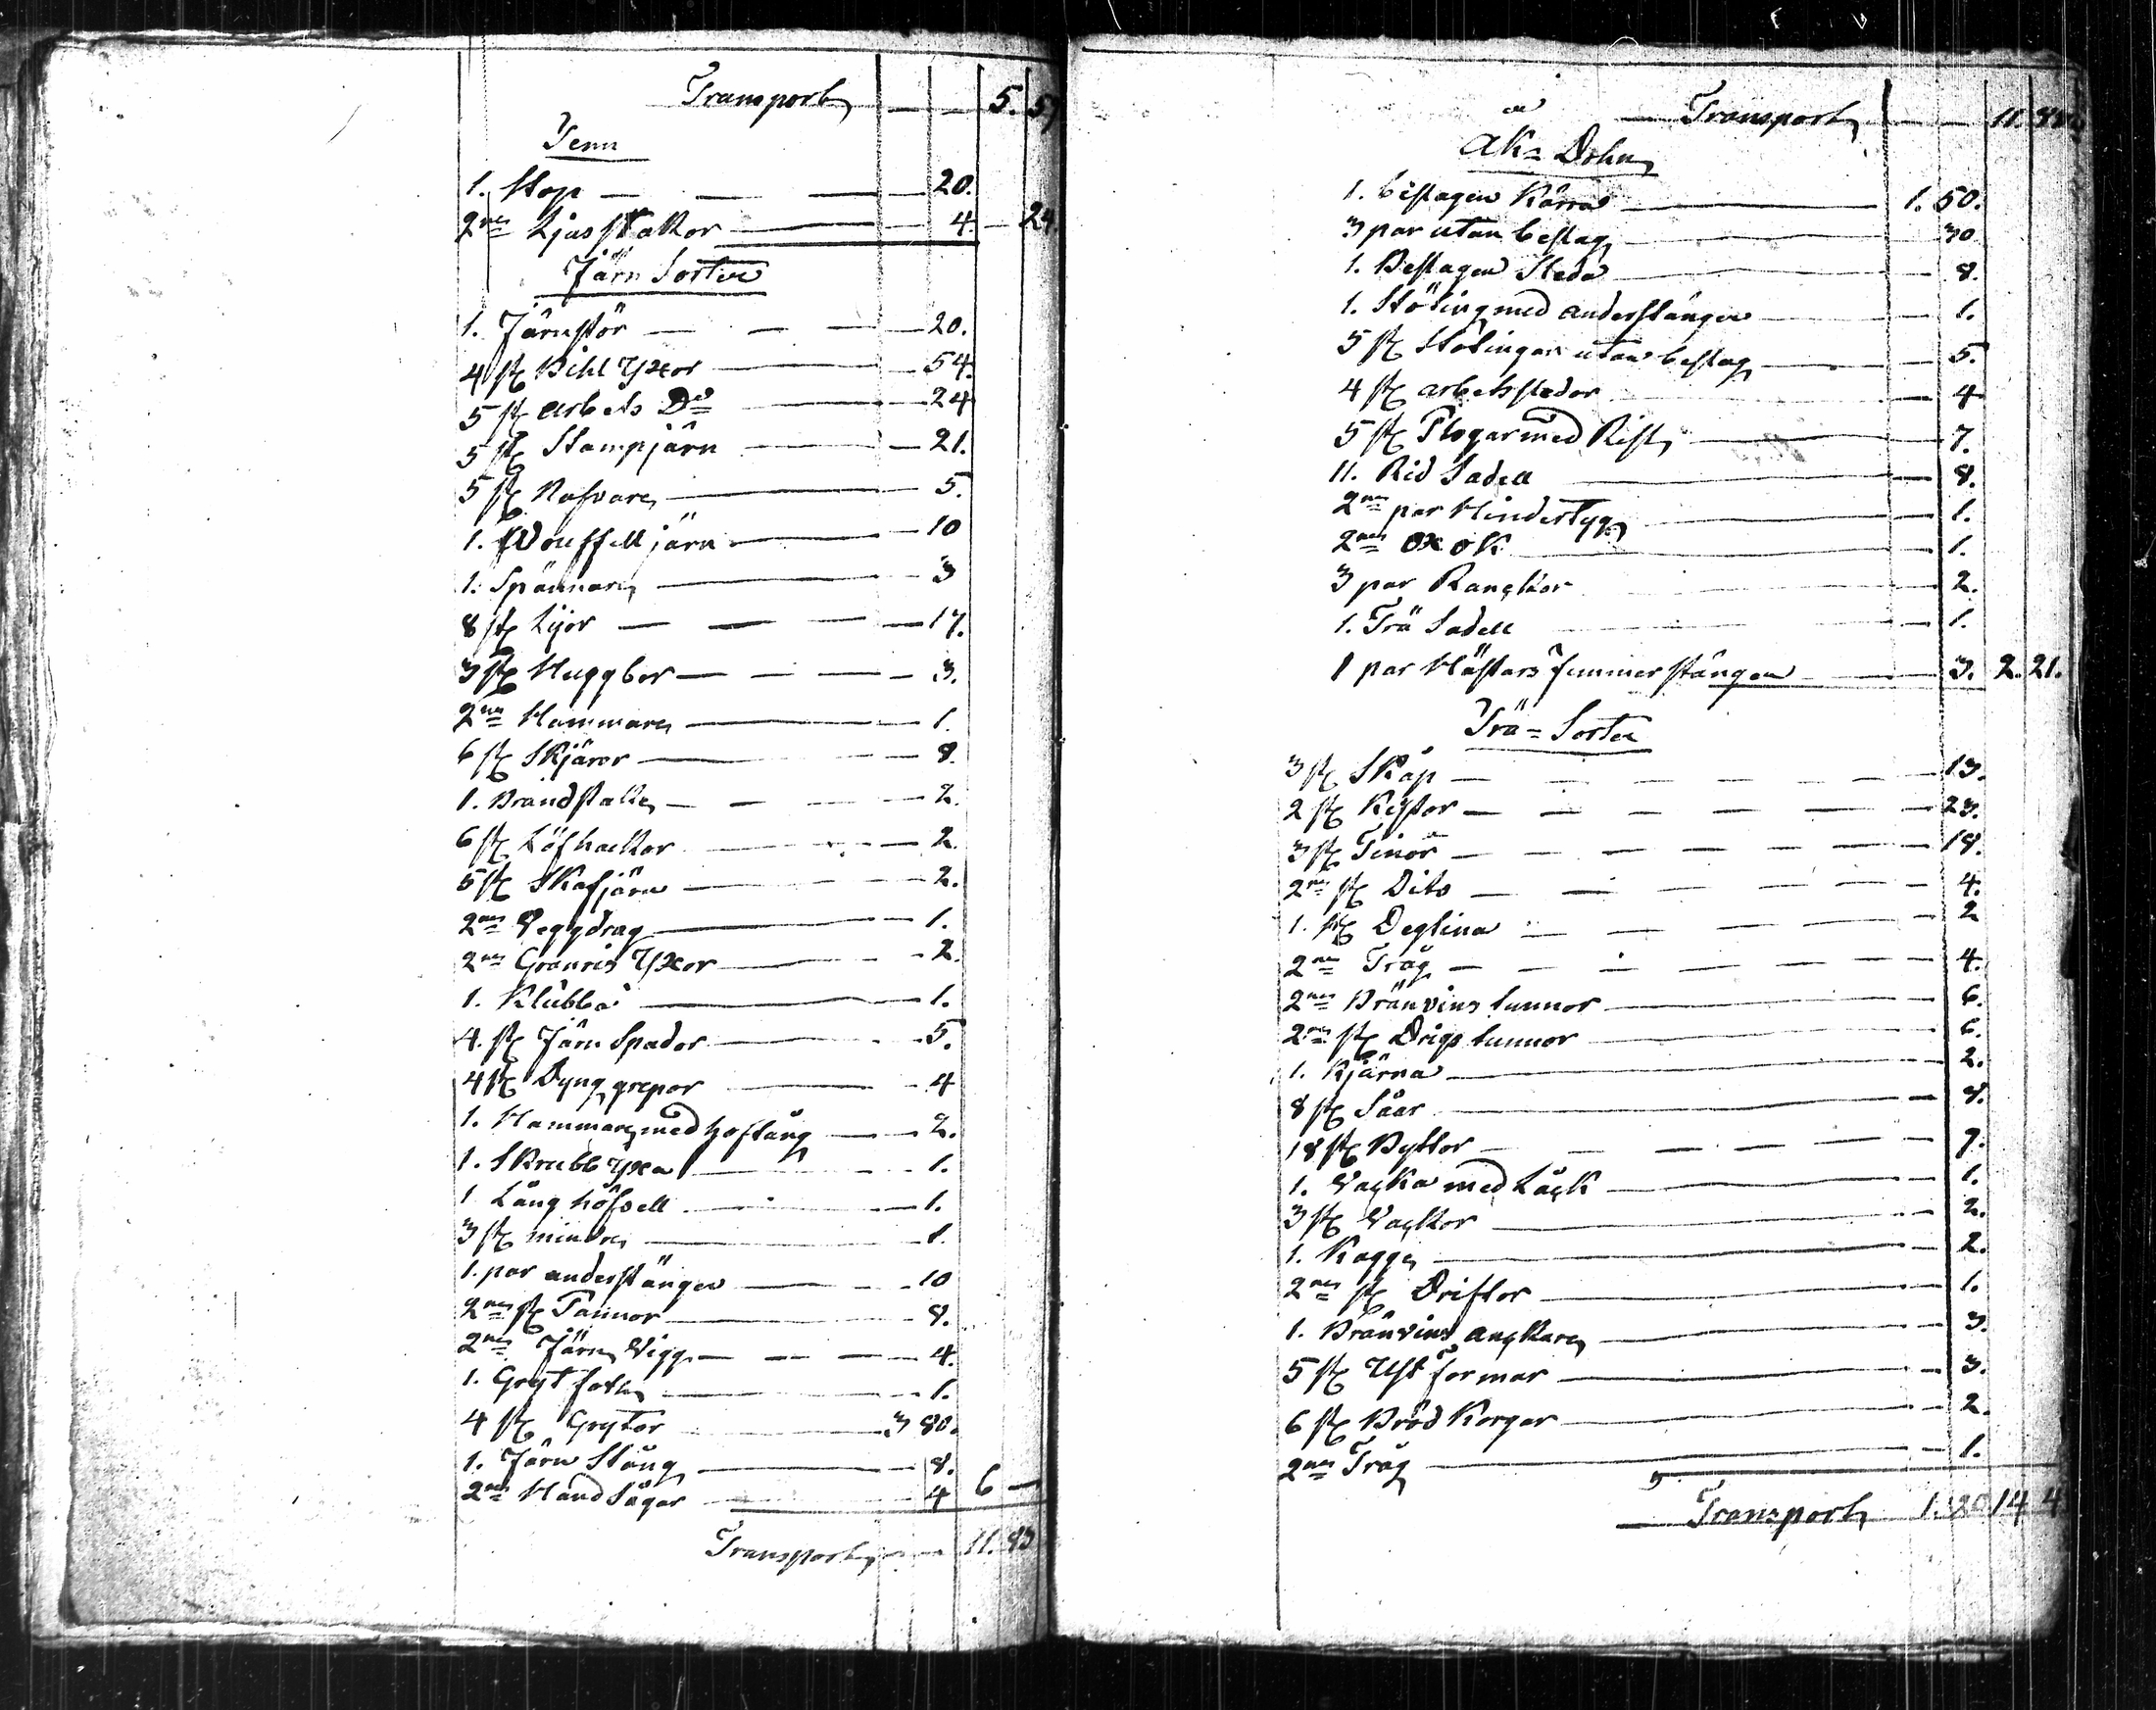 Transport — — 5. 59
Tenn
1. Stop — — — 20.
2ne Ljusstakor — 4. — 24.
Järn Sorter
1. Järnstör — — — 20.
4 st Bihl Yxor — 54.
5 st arbets Do — 24
5 st Stampjärn — 21.
5 st Nafvare — 5.
1. Wouffelljärn — 10
1. Spännare — 3
8 st Lijor — — — 17.
3 st Huggbor — — — 3.
2ne Hammare — 1.
6 st Skjäror — 8.
1. Brandstake — — — 2.
6 st Löfhackor — 2.
5 st Skafjärn — 2.
2ne Veggdrag — 1.
2ne Granris Yxor — 2.
1. Klubba — 1.
4. st Järn Spador — 5.
4 st Dynggrepor — 4
1. Hammare med hoftång — 2.
1. Skrubb Yxa — 1.
1 Lång höfvell — 1.
3 st mindre — 1.
1. par anderstänger — 10
2ne st Pannor — 8.
2ne Järn Vigg — — — 4.
1. Grytfot — 1.
4 st Grytor — 3 80.
1. Järn Stång — 8.
2ne Hand Sågar — 4 6 —
Transport — 11. 83
Transport — — 11. 83
Ak= Dohn
1. beslagen Kärra — 1. 50.
3 par utan beslag — 30
1. Beslagen Släda — 8.
1. Stöting med anderstänger — 1.
5 st Stötingar utan beslag — 5.
4 st arbetsslädor — 4
5 st Plogar med Rist — 7.
11. Rid Sadell — 8.
2ne par Hindertyg — 1.
2ne oxok — 1.
3 par Ranckor — 2.
1. Trä Sadell — 1.
1 par Hästars Jummerstänger — 3. 2. 21.
Trä= Sorter
3 st Skåp — — — — — 13.
2 st Kistor — — — — — 23.
3 st Tinor — — — — — 18.
2ne st Dito — — — — 4.
1. st Degtina — — — — 2
2ne Tråg — — — — — 4.
2ne Bränvins tunnor — 6.
2ne st Drigs tunnor — 6.
1. Kjärna — 2.
8 st Såar — 8.
18 st Byttor — — — — 7.
1. Vacka med Låck — 1.
3 st Vackor — 2.
1. Kagge — 2.
2ne st Driftor — 1.
1. Bränvins anckare — 3.
5 st Ust formar — 3.
6 st Bröd Korgar — 2.
2ne Tråg — 1.
Transport 1. 20 14 4